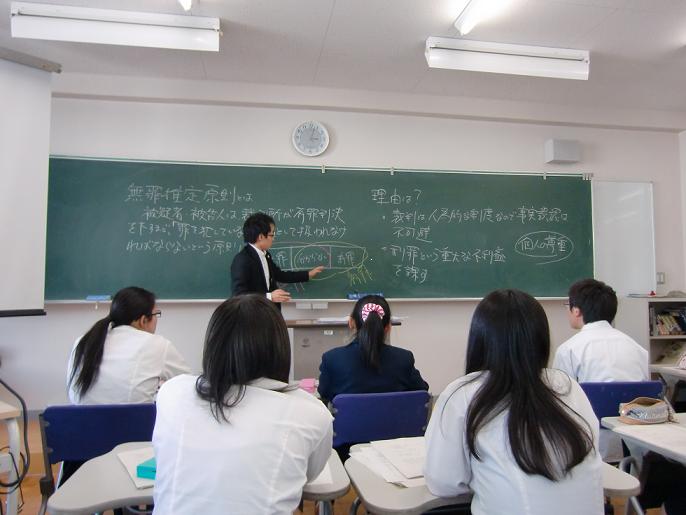 無罪推定原則とは
被疑者・被告人は 裁判所が有罪判決
を下すまで「罪を犯していない
として扱われなけ
ればならないという原則
罪
分からない
有罪
理由は?
・裁判は人為的な制度なので事実誤認は
不可避
・刑罰という重大な不利益
を課す
個人の尊重